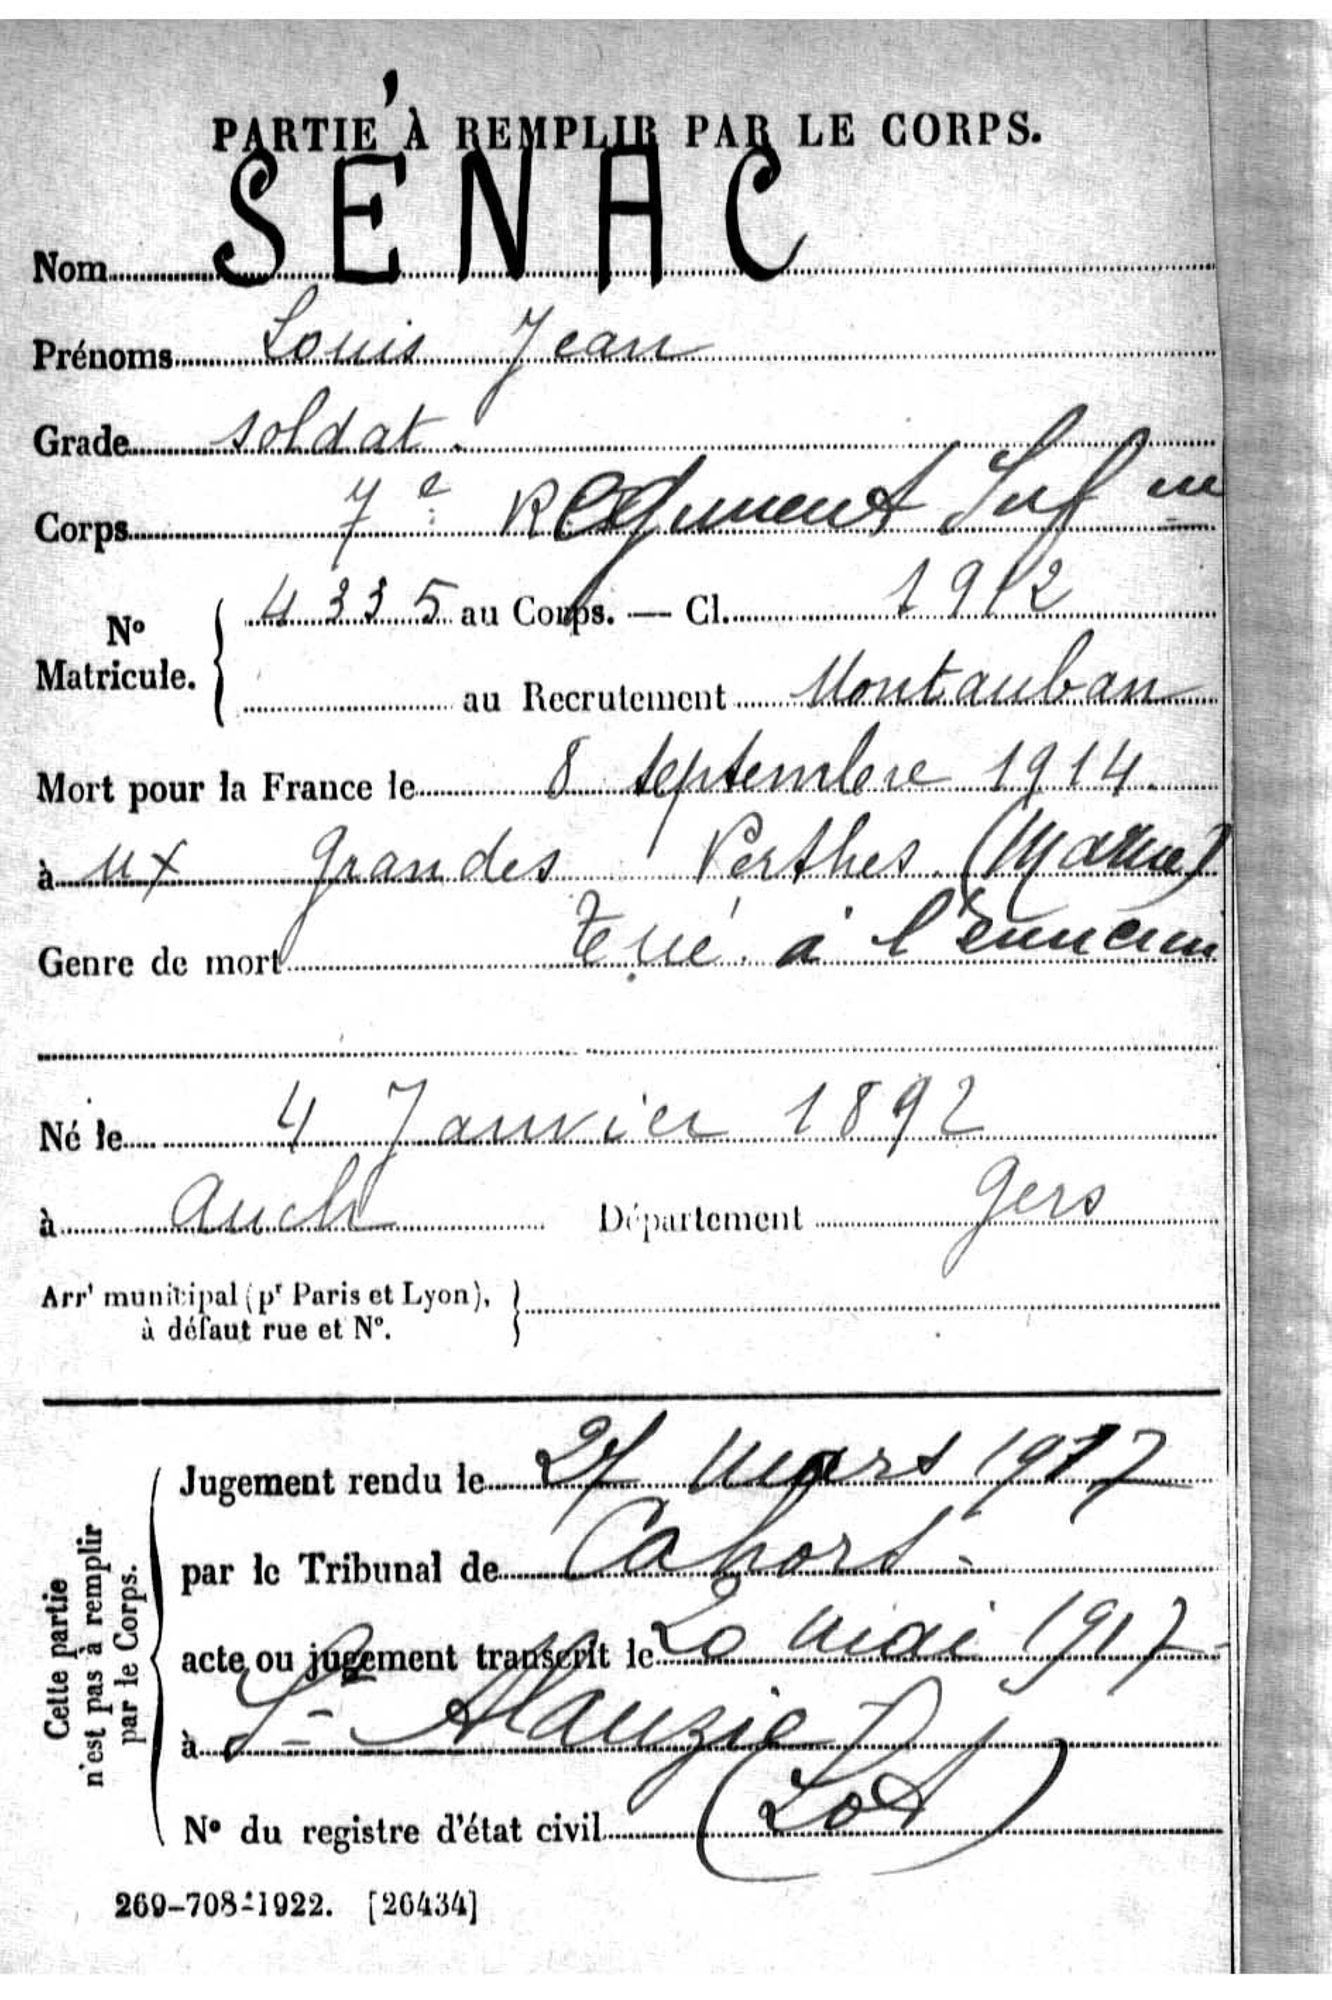 PARTIE À REMPLIR PAR LE CORPS.
Nom SÉNAC
Prénoms Louis Jean
Grade soldat.
Corps 7e Régiment Infie
No Matricule. { 4335 au Corps. — Cl. 1912
au Recrutement Montauban
Mort pour la France le 8 septembre 1914.
à ux Grandes Perthes (Marne)
Genre de mort tué à l'Ennemi
Né le 4 Janvier 1892
à Auch Département Gers
Arrt municipal (pr Paris et Lyon),
à défaut rue et No.
Cette partie n'est pas à remplir par le Corps.
Jugement rendu le 27 Mars 1917
par le Tribunal de Cahors.
acte ou jugement transcrit le 20 Mai 1917
à Ste Alauzie
No du registre d'état civil (Lot)
269-708-1922. [26434]